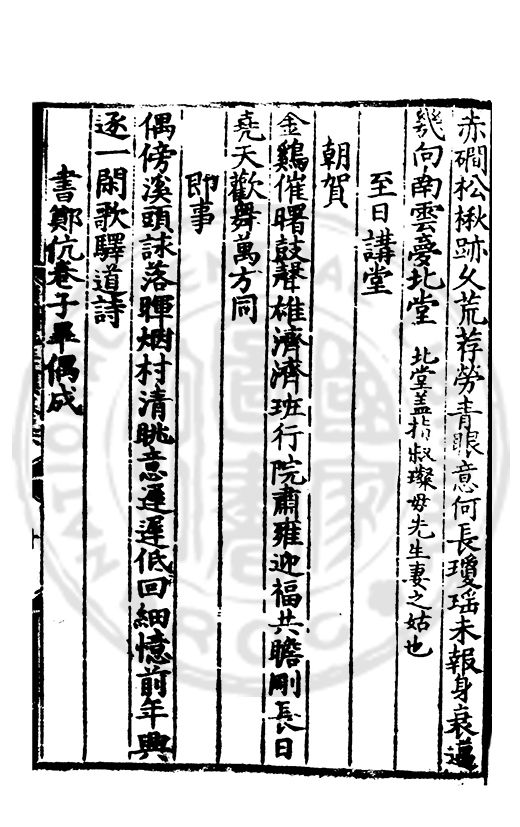 赤磵松楸跡久荒荐勞青眼意何長瓊瑶未報身衰邁
幾向南雲夢北堂 北堂盖指叔璨毋先生妻之姑也
至日講堂
朝賀
金鷄催曙鼓聲雄濟濟班行院肅雍迎福共瞻剛長日
堯天歡舞萬方同
即事
偶傍溪頭詠落暉烟村清眺意遲遲低回細憶前年興
逐一閑歌驛道詩
書鄭伉巷子
偶成